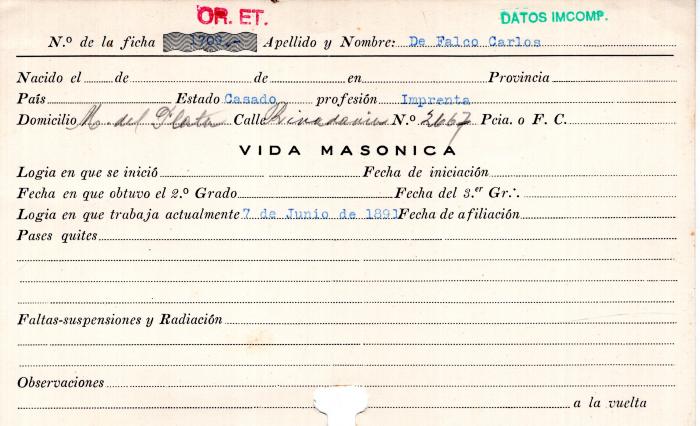 OR. ET.
DATOS IMCOMP.
N.º de la ficha 1709.- Apellido y Nombre: De Falco Carlos
Nacido el de de en Provincia
País Estado Casado profesión Imprenta
Domicilio M. del Plata Calle Rivadavia N.º 2667 Pcia. o F. C.
VIDA MASONICA
Logia en que se inició Fecha de iniciación
Fecha en que obtuvo el 2.º Grado Fecha del 3.er Gr∴
Logia en que trabaja actualmente 7 de Junio de 1891 Fecha de afiliación
Pases quites
Faltas-suspensiones y Radiación
Observaciones
a la vuelta